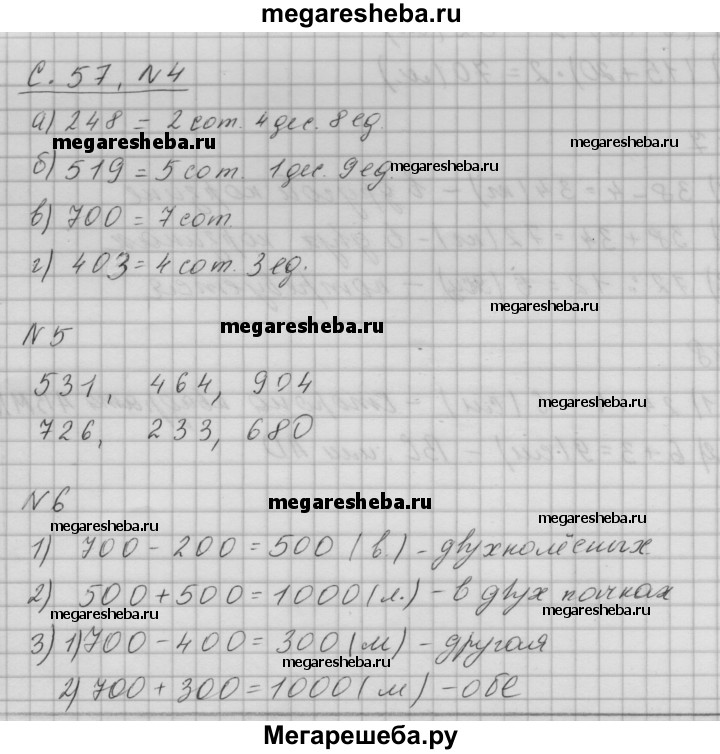 megaresheba.ru
С. 57, N4
а) 248 = 2 сот. 4 дес. 8 ед.
megaresheba.ru megaresheba.ru
б) 519 = 5 сот. 1 дес. 9 ед megaresheba.ru
в) 700 = 7 сот.
г) 403 = 4 сот. 3 ед.
megaresheba.ru
N5 megaresheba.ru
531, 464, 904
megaresheba.ru
726, 233, 680
N6 megaresheba.ru
megaresheba.ru megaresheba.ru
1) 700 - 200 = 500 (в.) - двухколёсных
2) 500 + 500 = 1000 (л.) - в двух пачках
megaresheba.ru megaresheba.ru
3) 1) 700 - 400 = 300 (м) - другая
megaresheba.ru
2) 700 + 300 = 1000 (м) - обе
Мегарешеба.ру